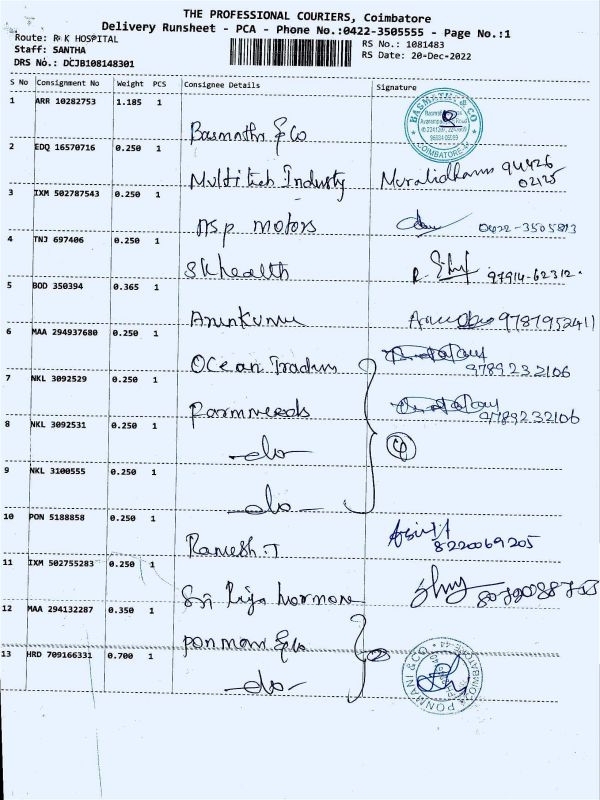 THE PROFESSIONAL COURIERS, Coimbatore
Delivery Runsheet - PCA - Phone No.:0422-3505555 - Page No.:1
Route: R K HOSPITAL
RS No.: 1081483
Staff: SANTHA
RS Date: 20-Dec-2022
DRS No.: DCJB108148301
S No Consignment No Weight PCS Consignee Details Signature
1 ARR 10282753 1.185 1
BASMATHI & CO
COIMBATORE
Basmathi & Co
2 EDQ 16570716 0.250 1
Multitech Industry Muralidharan 94426
02125
3 IXM 502787543 0.250 1
n.s.p motors 0422-3505813
4 TNJ 697406 0.250 1
SK health 97914-62312.
5 BOD 350394 0.365 1
Arunkumar 9787952411
6 MAA 294937680 0.250 1
Ocean Traders
9789232106
7 NKL 3092529 0.250 1
Parmneeds 9789232106
8 NKL 3092531 0.250 1
-do- 4
9 NKL 3100555 0.250 1
-do-
10 PON 5188858 0.250 1
Ramesh.T 8220069205
11 IXM 502755283 0.250 1
Sri
12 MAA 294132287 0.350 1
Ponmani & Co 2
13 HRD 709166331 0.700 1
-do-
PONMANI & CO
COIMBATORE